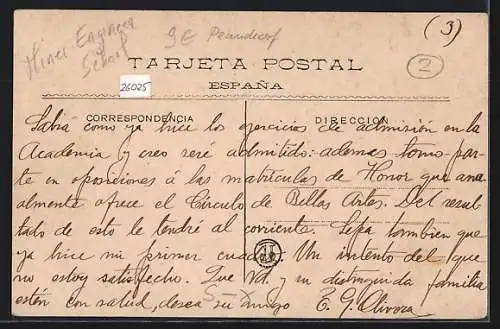 Mines Engineer
School
(3)
2
TARJETA POSTAL
ESPAÑA
26025
CORRESPONDENCIA
DIRECCIÓN
Sabrá como ya hice los ejercicios de admisión en la
Academia y creo seré admitido: además tomo par-
te en oposiciones á las matrículas de Honor que anu-
almente ofrece el Círculo de Bellas Artes. Del resul-
tado de esto le tendré al corriente. Sepa tambien que
ya hice mi primer cuadro. Un intento del que
no estoy satisfecho. Que Vd. y su distinguida familia
estén con salud, desea su amigo E. G. Olivera